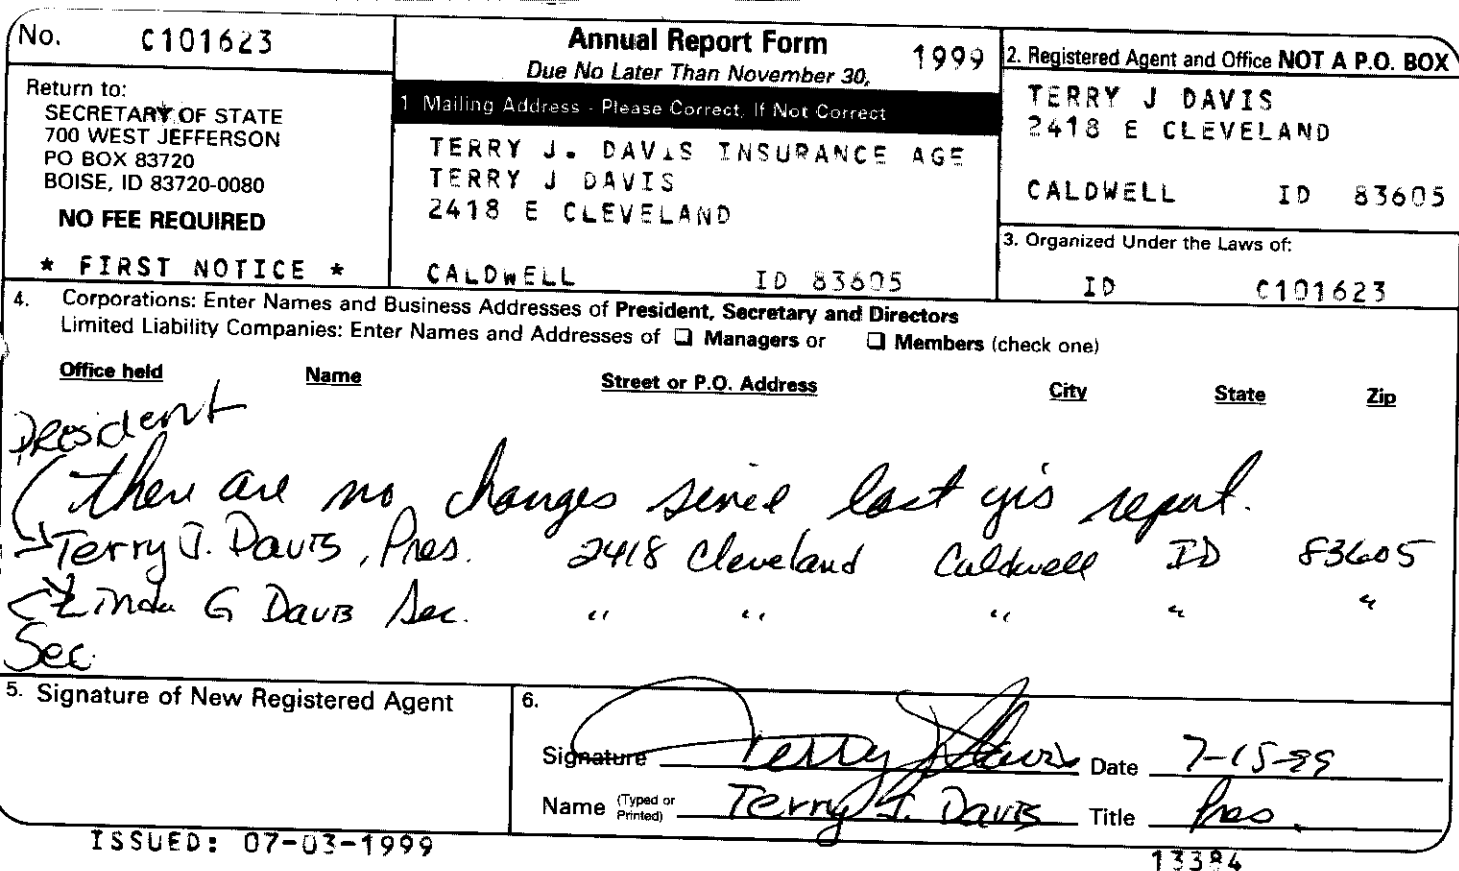 No. C101623
Return to:
SECRETARY OF STATE
700 WEST JEFFERSON
PO BOX 83720
BOISE, ID 83720-0080
NO FEE REQUIRED
* FIRST NOTICE *
Annual Report Form 1999
Due No Later Than November 30,
1 Mailing Address - Please Correct, If Not Correct
TERRY J. DAVIS INSURANCE AGE
TERRY J DAVIS
2418 E CLEVELAND
CALDWELL ID 83605
2. Registered Agent and Office NOT A P.O. BOX
TERRY J DAVIS
2418 E CLEVELAND
CALDWELL ID 83605
3. Organized Under the Laws of:
ID C101623
4. Corporations: Enter Names and Business Addresses of President, Secretary and Directors
Limited Liability Companies: Enter Names and Addresses of ❑ Managers or ❑ Members (check one)
Office held Name Street or P.O. Address City State Zip
President
(there are no changes since last yrs report.
Terry J. Davis, Pres. 2418 Cleveland Caldwell ID 83605
Linda G Davis Sec. " " " " "
Sec.
5. Signature of New Registered Agent
6.
Signature Terry J Davis Date 7-15-99
Name (Typed or Printed) Terry J. Davis Title Pres.
ISSUED: 07-03-1999
13384